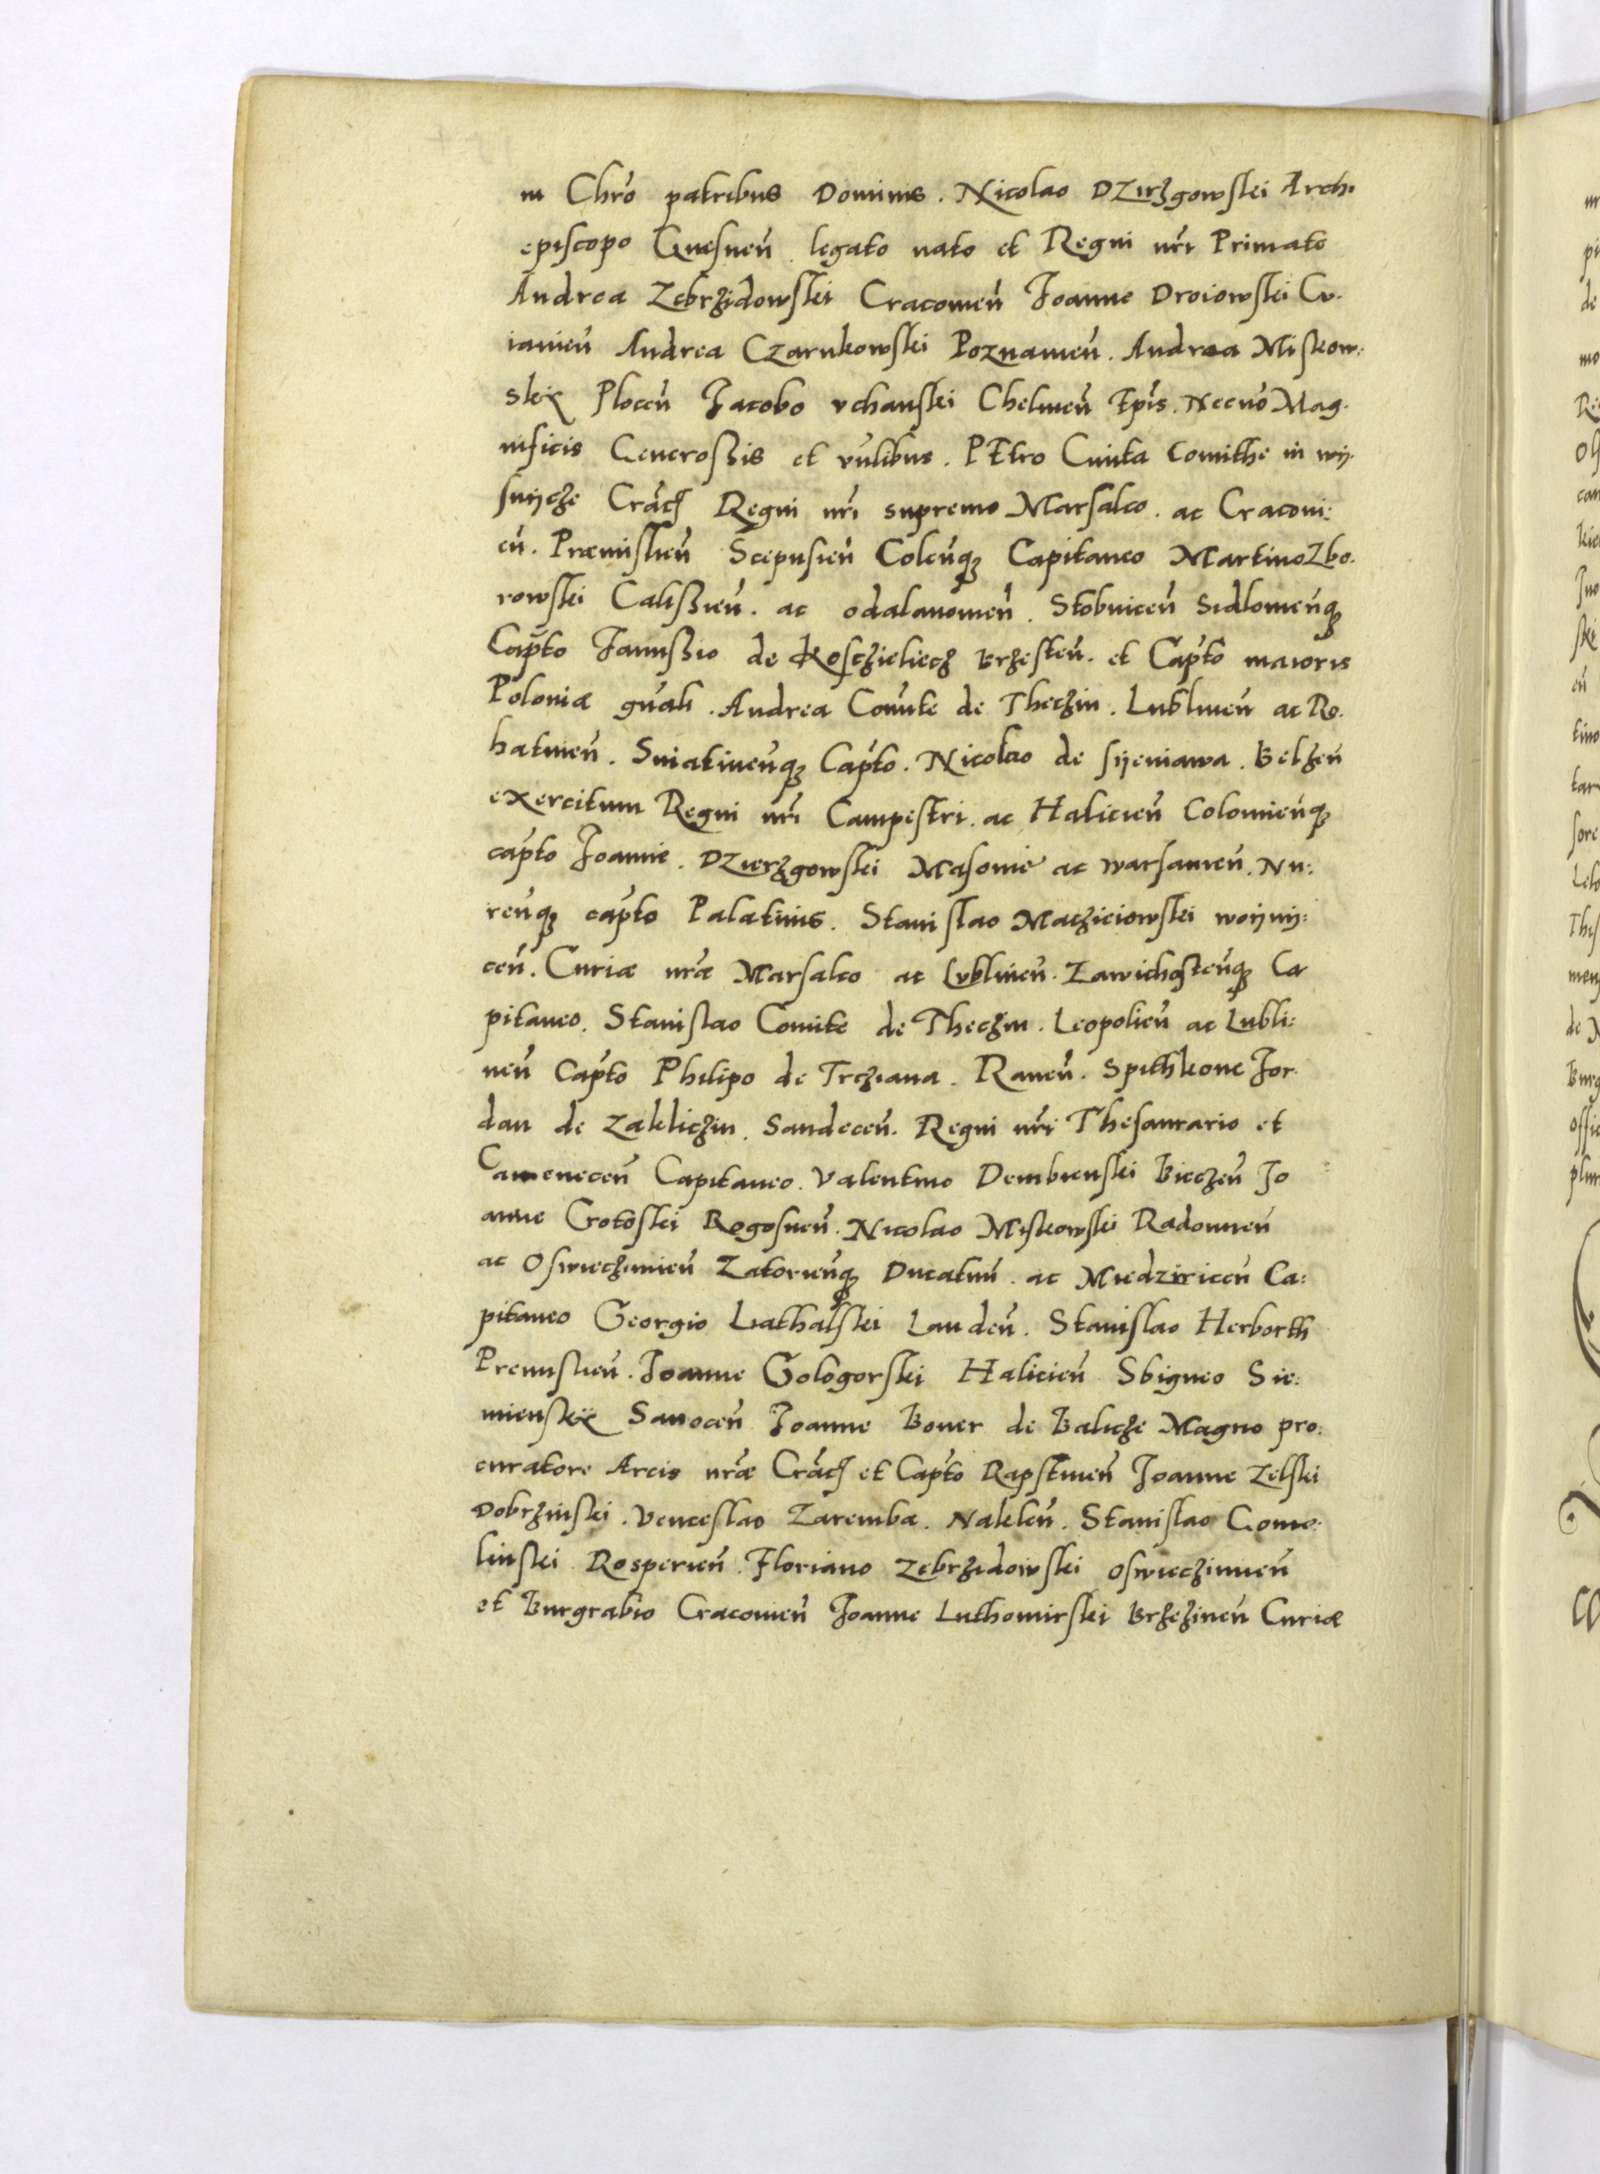 in Chr̃o patribus Dominis . Nicolao Dzirzgowskei Archi
episcopo Gnesneñ . legato nato et Regni nr̃i Primate
Andrea Zebrzidowskei Cracovieñ Joanne Droiowskei Cu.
iavieñ Andrea Czarnkowskei Poznanieñ . Andrea Miskow:
skeÿ Ploceñ Jacobo uchanskei Chelmeñ Epĩs . Necnõ Mag.
nificis Generoszis et ñulibus . PEtro Cmita Comithe in wij.
snijcze Crac̃ Regni nr̃i supremo Marsalco . ac Cracovi:
eñ . Præmislieñ Scepusieñ Coleñq3 Capitaneo Martino Zbo.
rowskei Caliszieñ . ac odalanovieñ . Stobniceñ Sidlovieñq3
Cap̃to Janusszio de Kosczieliecz Brzesteñ . et Cap̃to maioris
Poloniæ gñali . Andrea Comite de Theczin . Lublineñ ac Ro.
hatineñ . Sniatineñq3 Cap̃to . Nicolao de sijeniawa . Belzeñ
exercituum Regni nr̃i Campestri . ac Halicieñ Colomieñq3
cap̃to Joanne . Dzierzgowskei Masovie ac warsavieñ . Nu:
reñq3 cap̃to Palatinis . Stanislao Macziciowskei woijnij:
ceñ . Curiæ nr̃æ Marsalco ac Lublineñ . Zawichosteñq3 Ca
pitaneo . Stanislao Comite de Theczin . Leopolieñ ac Lubli:
neñ Cap̃to Philipo de Trcziana . Raveñ . Spithkone Jor.
dan de Zakliczin . Sandeceñ . Regni nr̃i Thesaurario et
Cameneceñ Capitaneo . Valentino Dembienskei Bieczeñ Jo
anne Crotoskei Rogosneñ . Nicolao Miskowskei Radomieñ
ac Oswieczimieñ Zatorieñq3 Ducatuũ . ac Miedziriceñ Ca:
pitaneo Georgio Lathalskei Landeñ . Stanislao Herborth
Premislieñ . Joanne Gologorskei Halicieñ Sbigneo Sie:
mienskeÿ Sanoceñ Joanne Boner de Balicze Magno pro:
curatore Arcis nr̃æ Crac̃ et Cap̃to Rapstineñ Joanne Zelskei
Dobrzinskei . Venceslao Zaremba . Nakleñ . Stanislao Gomo:
linskei Rosperieñ . Floriano Zebrzidowskei oswieczimieñ
et Burgrabio Cracovieñ Joanne Luthomirskei Brzezineñ Curiæ